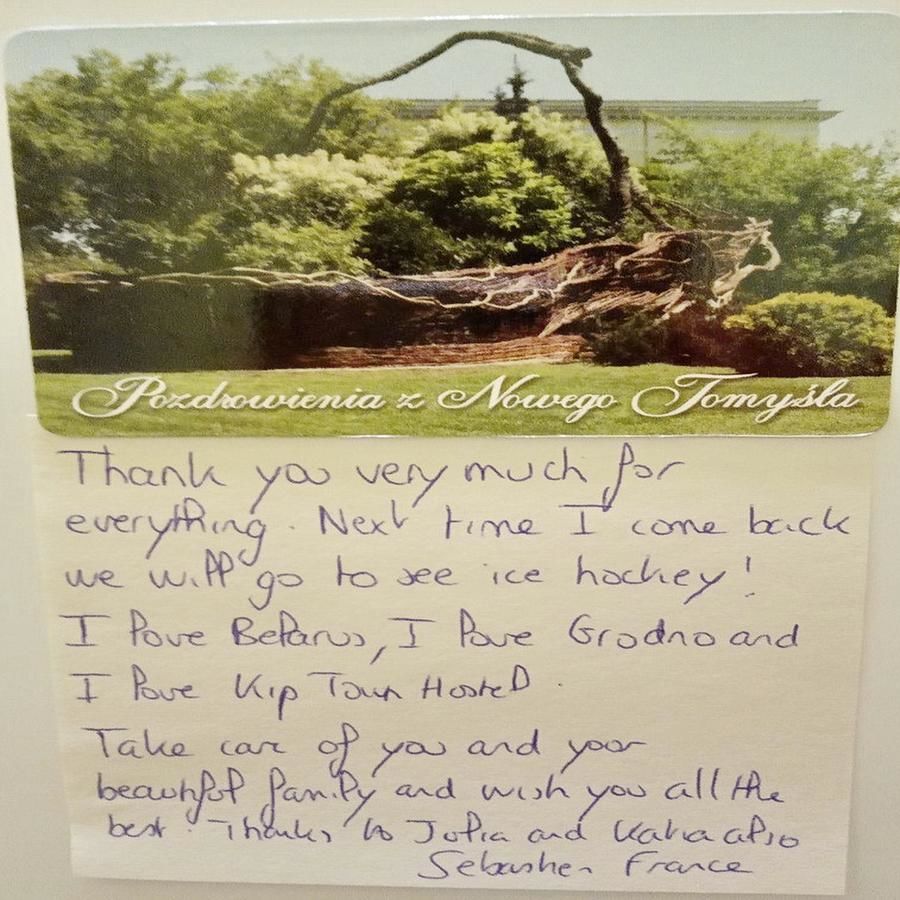 Pozdrowienia z Nowego Tomyśla
Thank you very much for
everything. Next time I come back
we will go to see ice hockey!
I love Belarus, I love Grodno and
I love Kip Town Hostel.
Take care of you and your
beautiful family and wish you all the
best. Thanks to Julia and Katia also
Sebastien France